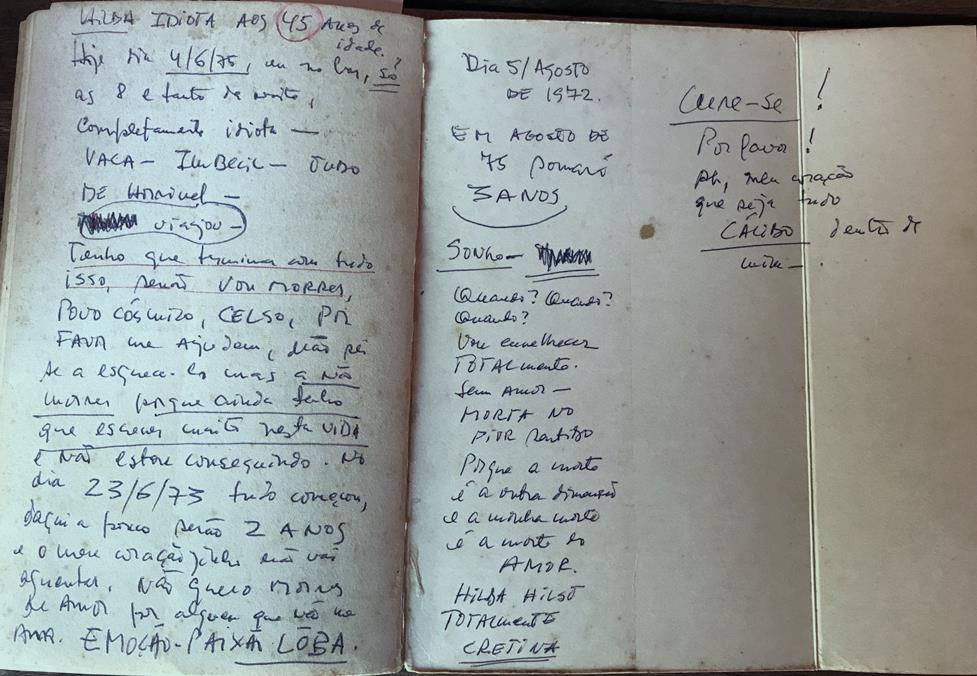 HILDA IDIOTA AOS 45 Anos de
idade.
Hoje dia 4/6/75, eu no bar, só
as 8 e tanto da noite,
Completamente idiota —
VACA — ImBecil — TUDO
DE HORRIVEL —
viajou —
Tenho que terminar com tudo
isso, senão VOU MORRER,
POVO CÓSMICO, CELSO, POR
FAVOR me AjuDem, não
se a esquecê-lo mas a NÃO
morrer porque ainda tenho
que escrever muito nesta VIDA
e NÃO estou conseguindo. No
dia 23/6/73 tudo começou,
daqui a pouco serão 2 ANOS
e o meu coraçãozinho não vai
aguentar. NÃO quero morrer
de Amor por alguem que não me
AMA. EMOÇÃO-PAIXÃO LÔBA.
Dia 5/AGOSTO
DE 1972.
EM AGOSTO DE
75 somará
3 ANOS
SONHO —
Quando? Quando?
Quando?
Vou envelhecer
TOTALmente.
Sem Amor —
MORTA NO
PIOR sentido
Porque a morte
é a outra dimensão
e a minha morte
é a morte do
AMOR.
HILDA HILST
TOTALmENTE
CRETINA
Cure-se!
Por favor!
Ah, meu coração
que seja tudo
CÁLIDO dentro de
mim —.